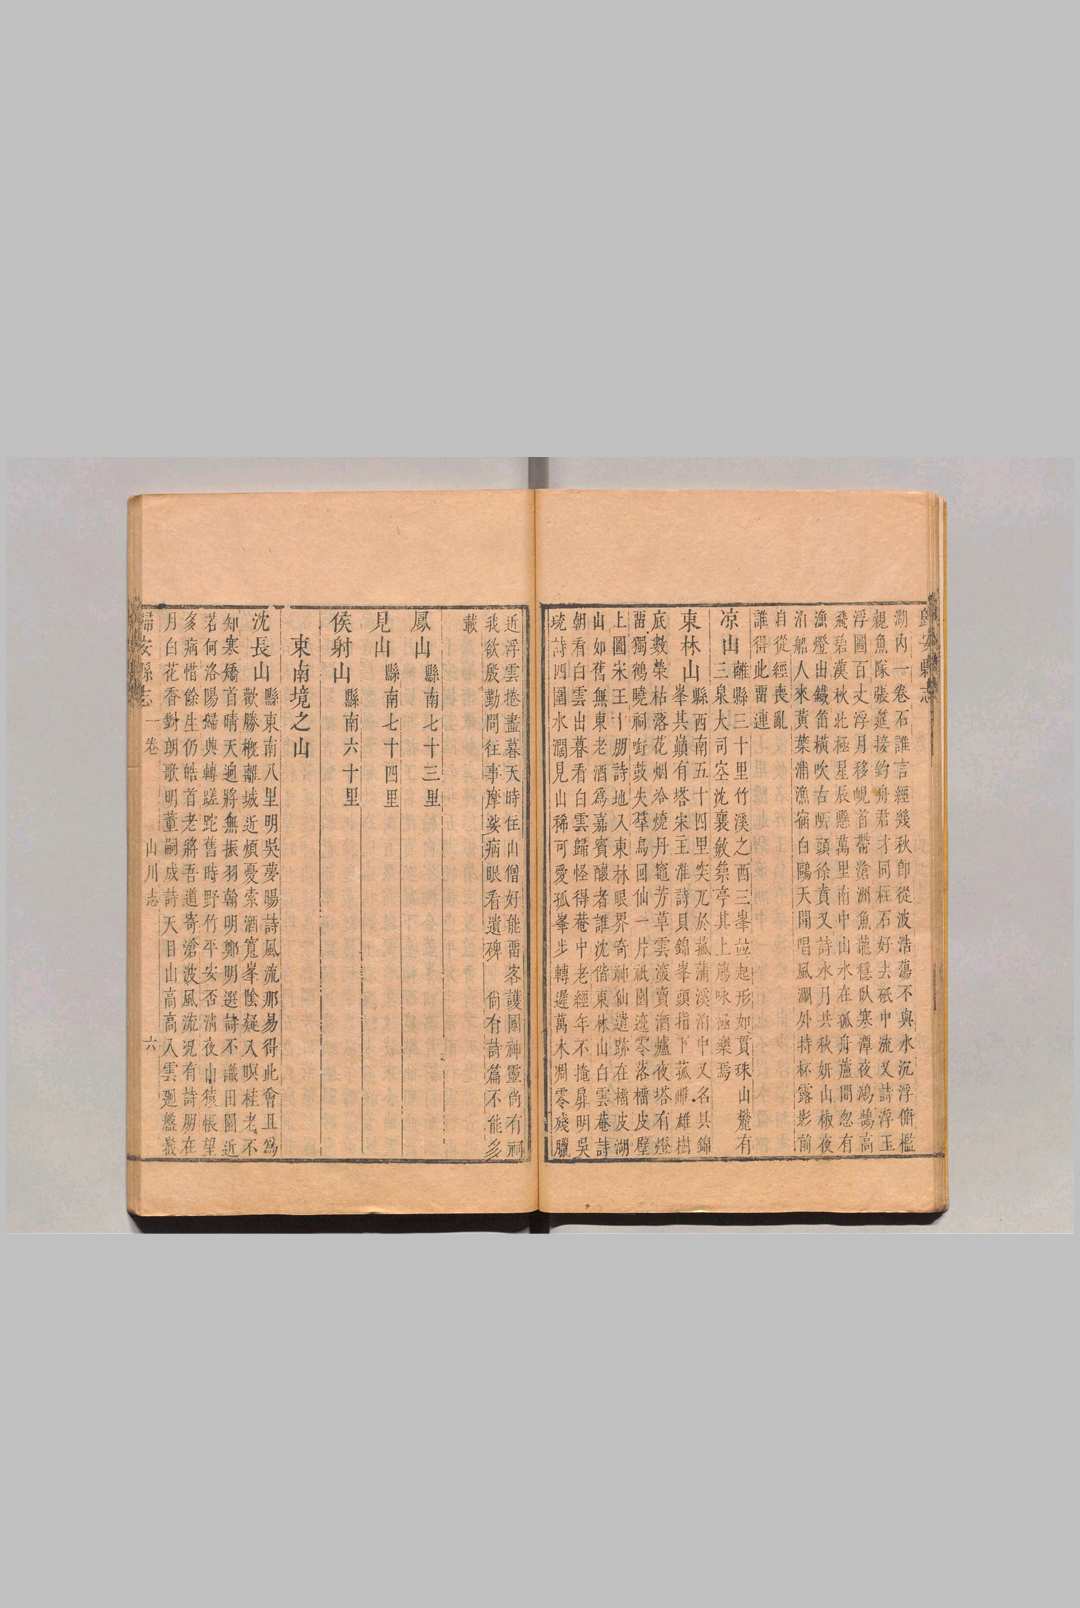 歸安縣志
湖內一卷石誰言經幾秋卽從波浩蕩不與水沉浮俯檻
親魚隊張筵接釣舟君才同柱石好去砥中流又詩浮玉
浮圖百丈浮月移峴首帶滄洲魚龍穩臥寒潭夜鴻鵠高
飛碧漢秋北極星辰懸萬里南中山水在孤舟蘆間忽有
漁燈出鐵笛橫吹古岸頭徐賁又詩水月共秋妍山椒夜
泊船人來黃葉浦漁宿白鷗天開唱風潮外持杯露影前
自從經喪亂
誰得此留連
凉山離縣三十里竹溪之西三峯竝起形如貫珠山麓有
三泉大司空沈襄敏築亭其上
東林山縣西南五十四里突兀於菰蒲溪泊中又名貝錦
峯其巔有塔宋王淮詩貝錦峯頭指下菰雕雄樹
底數榮枯落花烟冷燒丹竈芳草雲渡賣酒爐夜塔有燈
留獨鶴曉祠啇鼓失羣烏回仙一片祇園邊零落橘皮壁
上圖宋王十朋詩地入東林眼界奇神仙遺跡在橘皮湖
山如舊無東老酒爲嘉賓釀者誰沈偕東林山白雲菴詩
朝看白雲出暮看白雲歸怪得菴中老經年不掩扉明吳
琉詩四圍水濶見山稀可愛孤峯步轉遲萬木凋零殘臘
近浮雲捲盡暮天時住山僧好能留客護國神靈尚有祠
我欲殷勤問往事摩挲病眼看遺碑　尚有詩篇不能多
載
鳳山縣南七十三里
見山縣南七十四里
侯射山縣南六十里
東南境之山
沈長山縣東南八里明吳夢暘詩風流那易得此會且爲
歡勝槪離城近煩憂索酒寬峯陰疑入暝桂老不
知寒矯首晴天逈將無振羽翰明鄭明選詩不識田園近
若何洛陽歸輿轉蹉跎舊時野竹平安否淸夜山猿悵望
多病惜餘生仍皓首老將吾道寄滄波風流況有詩朋在
月白花香對朗歌明董嗣成詩天目山高高入雲廻盤幾
歸安縣志 一卷 山川志 六